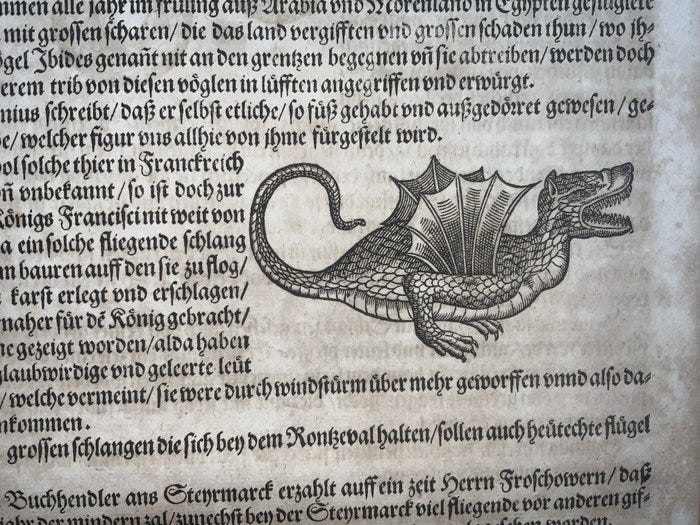 mmen alle jahr im früling auß Arabia vnd Morenland in Egypten geflügelte
mit grossen scharen/ die das land vergifften vnd grossen schaden thun/ wo jh⸗
ögel Ibides genañt nit an den grentzen begegnen vñ sie abtreiben/ werden doch
erem trib von diesen vöglen in lüfften angegriffen vnd erwürgt.
nius schreibt/ daß er selbst etliche/ so füß gehabt vnd außgedörret gewesen/ ge⸗
be/ welcher figur vns allhie von jhme fürgestelt wird.
ol solche thier in Franckreich
vñ vnbekannt/ so ist doch zur
Königs Francisci nit weit von
a ein solche fliegende schlang
m bauren auff den sie zu flog/
karst erlegt vnd erschlagen/
rnaher für dē König gebracht/
ne gezeigt worden/ alda haben
glaubwirdige vnd geleerte leüt
/ welche vermeint/ sie were durch windstürm über mehr geworffen vnnd also da⸗
nkommen.
grossen schlangen die sich bey dem Rontzeval halten/ sollen auch heütechte flügel
Buchhendler aus Steyrmarck erzahlt auff ein zeit Herrn Froschowern/ daß
jahr der mindern zal/ zunechst bey der Steyrmarck viel fliegende vor anderen gif⸗